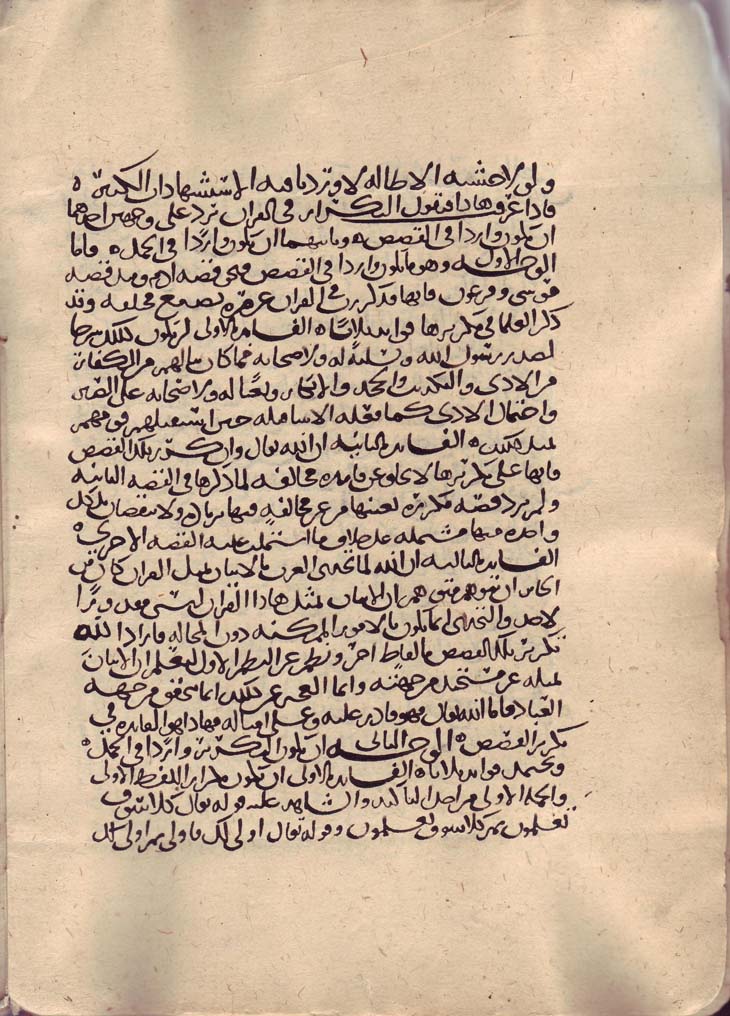 ولولا خشية الاطالة لاوردنا فيه الاستشهادات الكثيرة
فاذا عرف هاذا فنقول التكرار في القران يرد على وجهين احدهما
ان يكون واردا في القصص وثانيهما ان يكون واردا في الجمل واما
الوجه الاول وهو ما يكون واردا في القصص فنحو قصة ادم ومثل قصة
موسى وفرعون فانها قد تكررت في القران غير مرة بصيغ مختلفة وقد
ذكر العلما في تكريرها فوايد ثلاثا الفايدة الاولى ان يكون ذلك شرحا
لصدر رسول الله وتسلية له ولاصحابه فيما كان ينالهم من الكفار
من الاذى والتكذيب والجحد والانكار وبعثا له ولاصحابه على الصبر
واحتمال الاذى كما فعله الانبيا قبله حين
لمثل ذلك الفايدة الثانية ان الله تعالى وان كرر تلك القصص
فانها على تكريرها لا تخلو عن فايدة مخالفة لما ذكرها في القصة الثانية
ولم يرد قصة مكررة بعينها من غير مخالفة فيها بزيادة ولا نقصان بل كل
واحدة منها مشتملة على خلاف ما اشتملت عليه القصة الاخرى
الفايدة الثالثة ان الله لما تحدى العرب بالاتيان بمثل القران كان من
الجايز ان يتوهم متوهم ان الاتيان بمثل هاذا القران ليس مقدورا
لاحد والتحدي انما يكون بالامور الممكنة دون المحالة فاراد الله
تكرير تلك القصص بالفاظ اخر ونظم غير النظم الاول ليعلم ان الاتيان
بمثله غير مستحيل من جهته وانما العجز عن ذلك انما تحقق من جهة
العباد فاما الله تعالى فهو قادر عليه وعلى امثاله فهاذا هو الفايدة في
تكرير القصص الوجه الثاني ان يكون التكرير واردا في الجمل
ويحتمل فوايد ثلاثا الفايدة الاولى ان يكون تكرار اللفظ الاولى
والجملة الاولى من اجل التاكيد والشاهد عليه قوله تعالى كلا سوف
تعلمون ثم كلا سوف تعلمون وقوله تعالى اولى لك فاولى ثم اولى لك